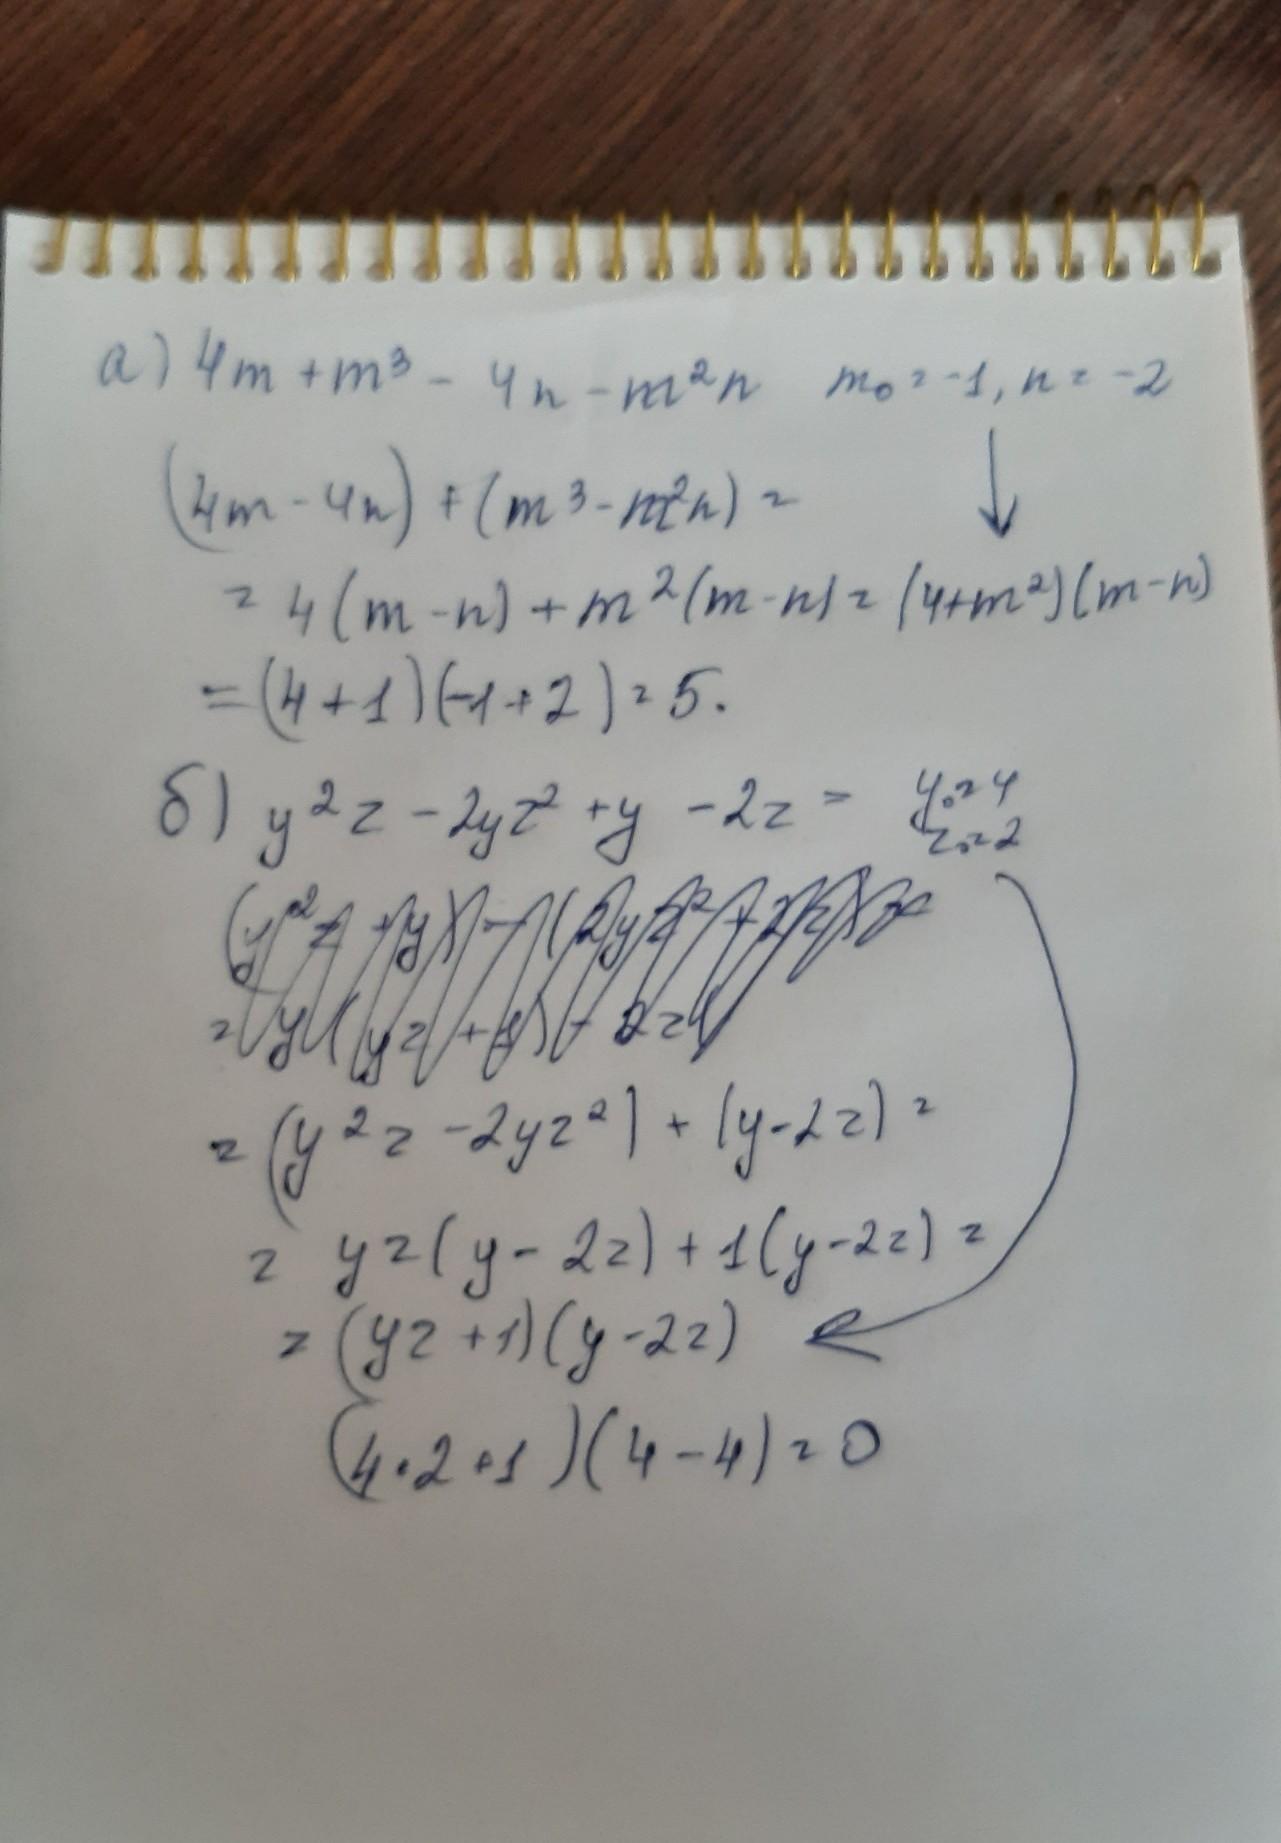 а) 4m + m³ - 4n - m²n   m₀ = -1, n = -2
(4m - 4n) + (m³ - m²n) =
= 4(m - n) + m²(m - n) = (4+m²)(m-n)
= (4+1)(-1+2) = 5.
б) y²z - 2yz² + y - 2z =   y₀=4
z₀=2
(y²z + y) - (2yz² + 2z) =
= y(yz + 1) - 2z(
= (y²z - 2yz²) + (y - 2z) =
= yz(y - 2z) + 1(y - 2z) =
= (yz + 1)(y - 2z)
(4·2+1)(4-4) = 0